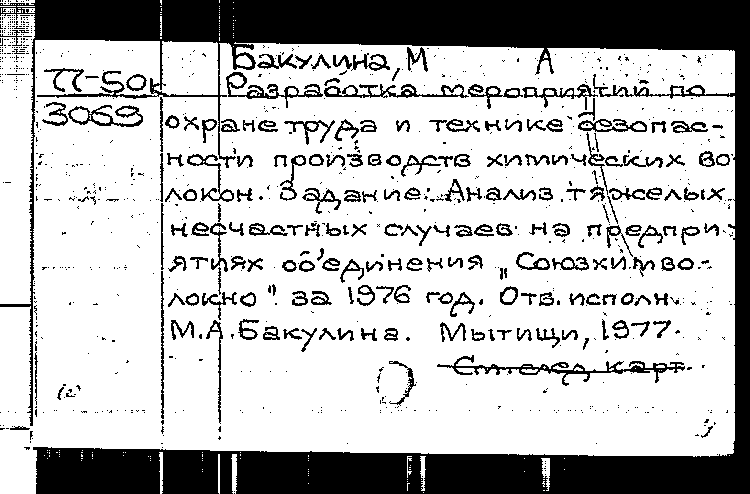 Бакулина, М А
П-50к
3069
Разработка мероприятий по
охране труда и технике безопас-
ности производств химических во
локон. Задание: Анализ тяжелых
несчастных случаев на предпри-
ятиях об'единения „Союзхимво-
локно". за 1976 год. Отв. исполн.
М.А. Бакулина. Мытищи, 1977.
См. след. карт.